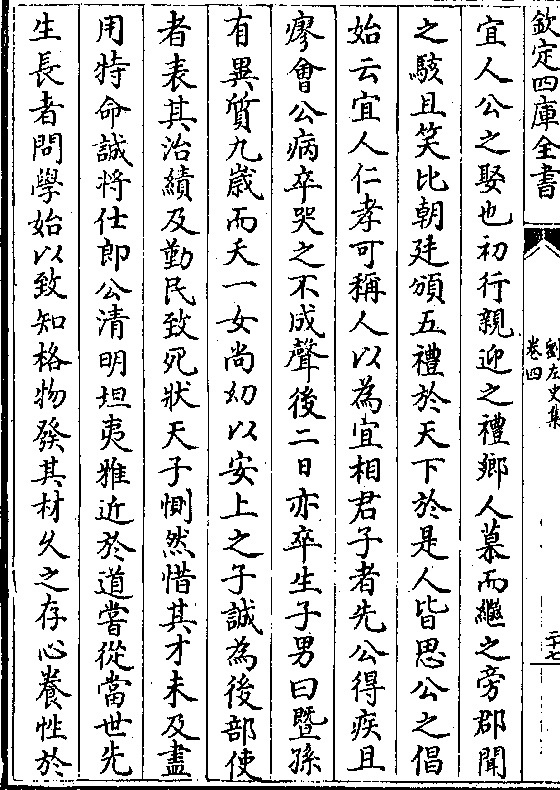 欽定四庫全書
劉左史集
卷四
二十七
宜人公之娶也初行親迎之禮鄉人慕而繼之旁郡聞
之駭且笑比朝廷頒五禮於天下於是人皆思公之倡
始云宜人仁孝可稱人以為宜相君子者先公得疾且
瘳會公病卒哭之不成聲後二日亦卒生子男曰暨孫
有異質九嵗而夭一女尚幼以安上之子誠為後部使
者表其治績及勤民致死狀天子惻然惜其才未及盡
用特命誠將仕郎公清明坦夷雅近於道嘗從當世先
生長者問學始以致知格物發其材久之存心養性於